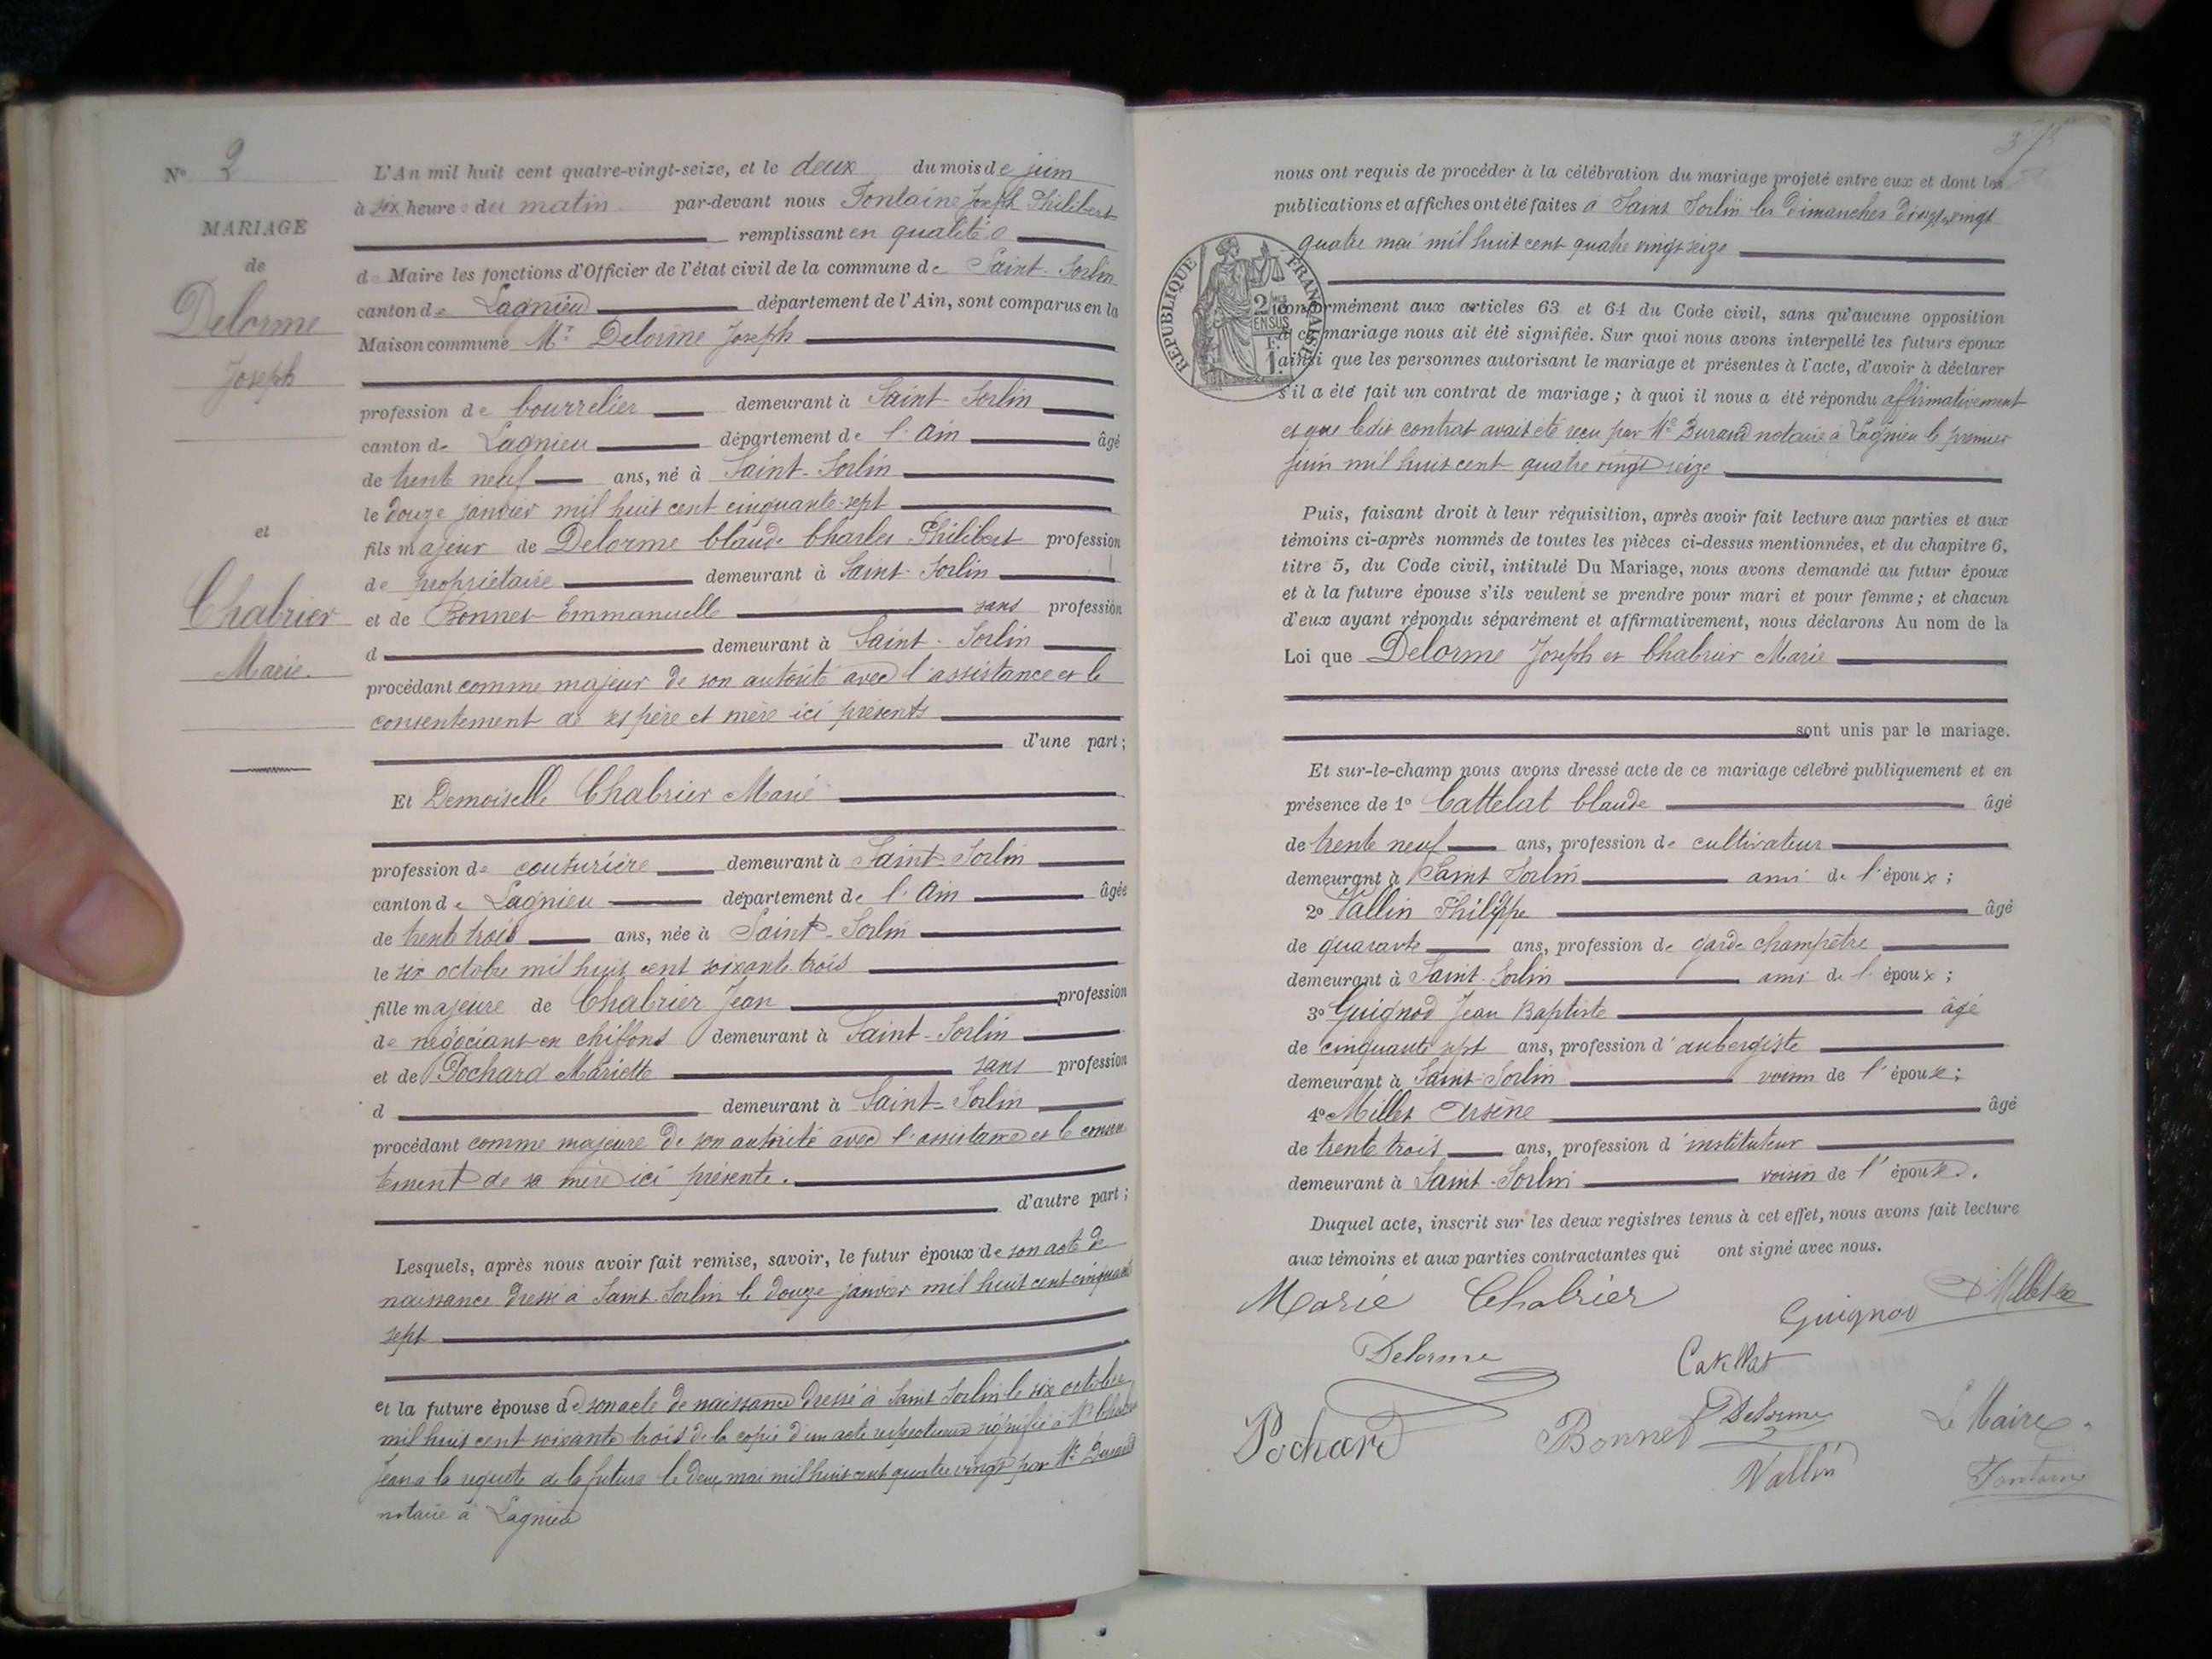 N° 2
MARIAGE
de
Delorme
Joseph
et
Chabrier
Marie.
L'An mil huit cent quatre-vingt-seize, et le deux du mois de juin
à six heures du matin par-devant nous Fontaine Joseph Philibert
remplissant en qualité
de Maire les fonctions d'Officier de l'état civil de la commune de Saint-Sorlin
canton de Lagnieu département de l'Ain, sont comparus en la
Maison commune Mr Delorme Joseph
profession de bourrelier demeurant à Saint-Sorlin
canton de Lagnieu département de l'Ain âgé
de trente neuf ans, né à Saint-Sorlin
le douze janvier mil huit cent cinquante-sept
fils majeur de Delorme Claude Charles Philibert profession
de propriétaire demeurant à Saint-Sorlin
et de Bonnet Emmanuelle sans profession
d demeurant à Saint-Sorlin
procédant comme majeur de son autorité avec l'assistance et le
consentement de ses père et mère ici présents
d'une part;
Et Demoiselle Chabrier Marie
profession de couturière demeurant à Saint-Sorlin
canton de Lagnieu département de l'Ain âgée
de trente trois ans, née à Saint-Sorlin
le six octobre mil huit cent soixante trois
fille majeure de Chabrier Jean profession
de négociant en chiffons demeurant à Saint-Sorlin
et de Pochard Mariette sans profession
d demeurant à Saint-Sorlin
procédant comme majeure de son autorité avec l'assistance et le consen
tement de sa mère ici présente.
d'autre part;
Lesquels, après nous avoir fait remise, savoir, le futur époux de son acte de
naissance dressé à Saint-Sorlin le douze janvier mil huit cent cinquante
sept
et la future épouse de son acte de naissance dressé à Saint Sorlin le six octobre
mil huit cent soixante trois de la copie d'un acte respectueux signifié à Mr Chabrier
Jean à la requête de la future le deux mai mil huit cent quatre vingt par Me Durand
notaire à Lagnieu
nous ont requis de procéder à la célébration du mariage projeté entre eux et dont les
publications et affiches ont été faites à Saint Sorlin les Dimanches vingt
quatre mai mil huit cent quatre vingt seize
RÉPUBLIQUE FRANÇAISE
2/10ES
EN SUS
1 F.
conformément aux articles 63 et 64 du Code civil, sans qu'aucune opposition
à ce mariage nous ait été signifiée. Sur quoi nous avons interpellé les futurs époux
ainsi que les personnes autorisant le mariage et présentes à l'acte, d'avoir à déclarer
s'il a été fait un contrat de mariage; à quoi il nous a été répondu affirmativement
et que ledit contrat avait été reçu par Me Durand notaire à Lagnieu le premier
juin mil huit cent quatre vingt seize
Puis, faisant droit à leur réquisition, après avoir fait lecture aux parties et aux
témoins ci-après nommés de toutes les pièces ci-dessus mentionnées, et du chapitre 6,
titre 5, du Code civil, intitulé Du Mariage, nous avons demandé au futur époux
et à la future épouse s'ils veulent se prendre pour mari et pour femme; et chacun
d'eux ayant répondu séparément et affirmativement, nous déclarons Au nom de la
Loi que Delorme Joseph et Chabrier Marie
sont unis par le mariage.
Et sur-le-champ nous avons dressé acte de ce mariage célébré publiquement et en
présence de 1° Cattelat Claude âgé
de trente neuf ans, profession de cultivateur
demeurant à Saint Sorlin ami de l'époux;
2° Vallin Philippe âgé
de quarante ans, profession de garde champêtre
demeurant à Saint-Sorlin ami de l'époux;
3° Guignod Jean Baptiste âgé
de cinquante sept ans, profession d'aubergiste
demeurant à Saint-Sorlin voisin de l'épouse;
4° Millet Arsène âgé
de trente trois ans, profession d'instituteur
demeurant à Saint-Sorlin voisin de l'épouse.
Duquel acte, inscrit sur les deux registres tenus à cet effet, nous avons fait lecture
aux témoins et aux parties contractantes qui ont signé avec nous.
Marie Chabrier
Guignod Millet
Delorme Catellat
Pochard Bonnet Delorme Le Maire
Vallin Fontaine